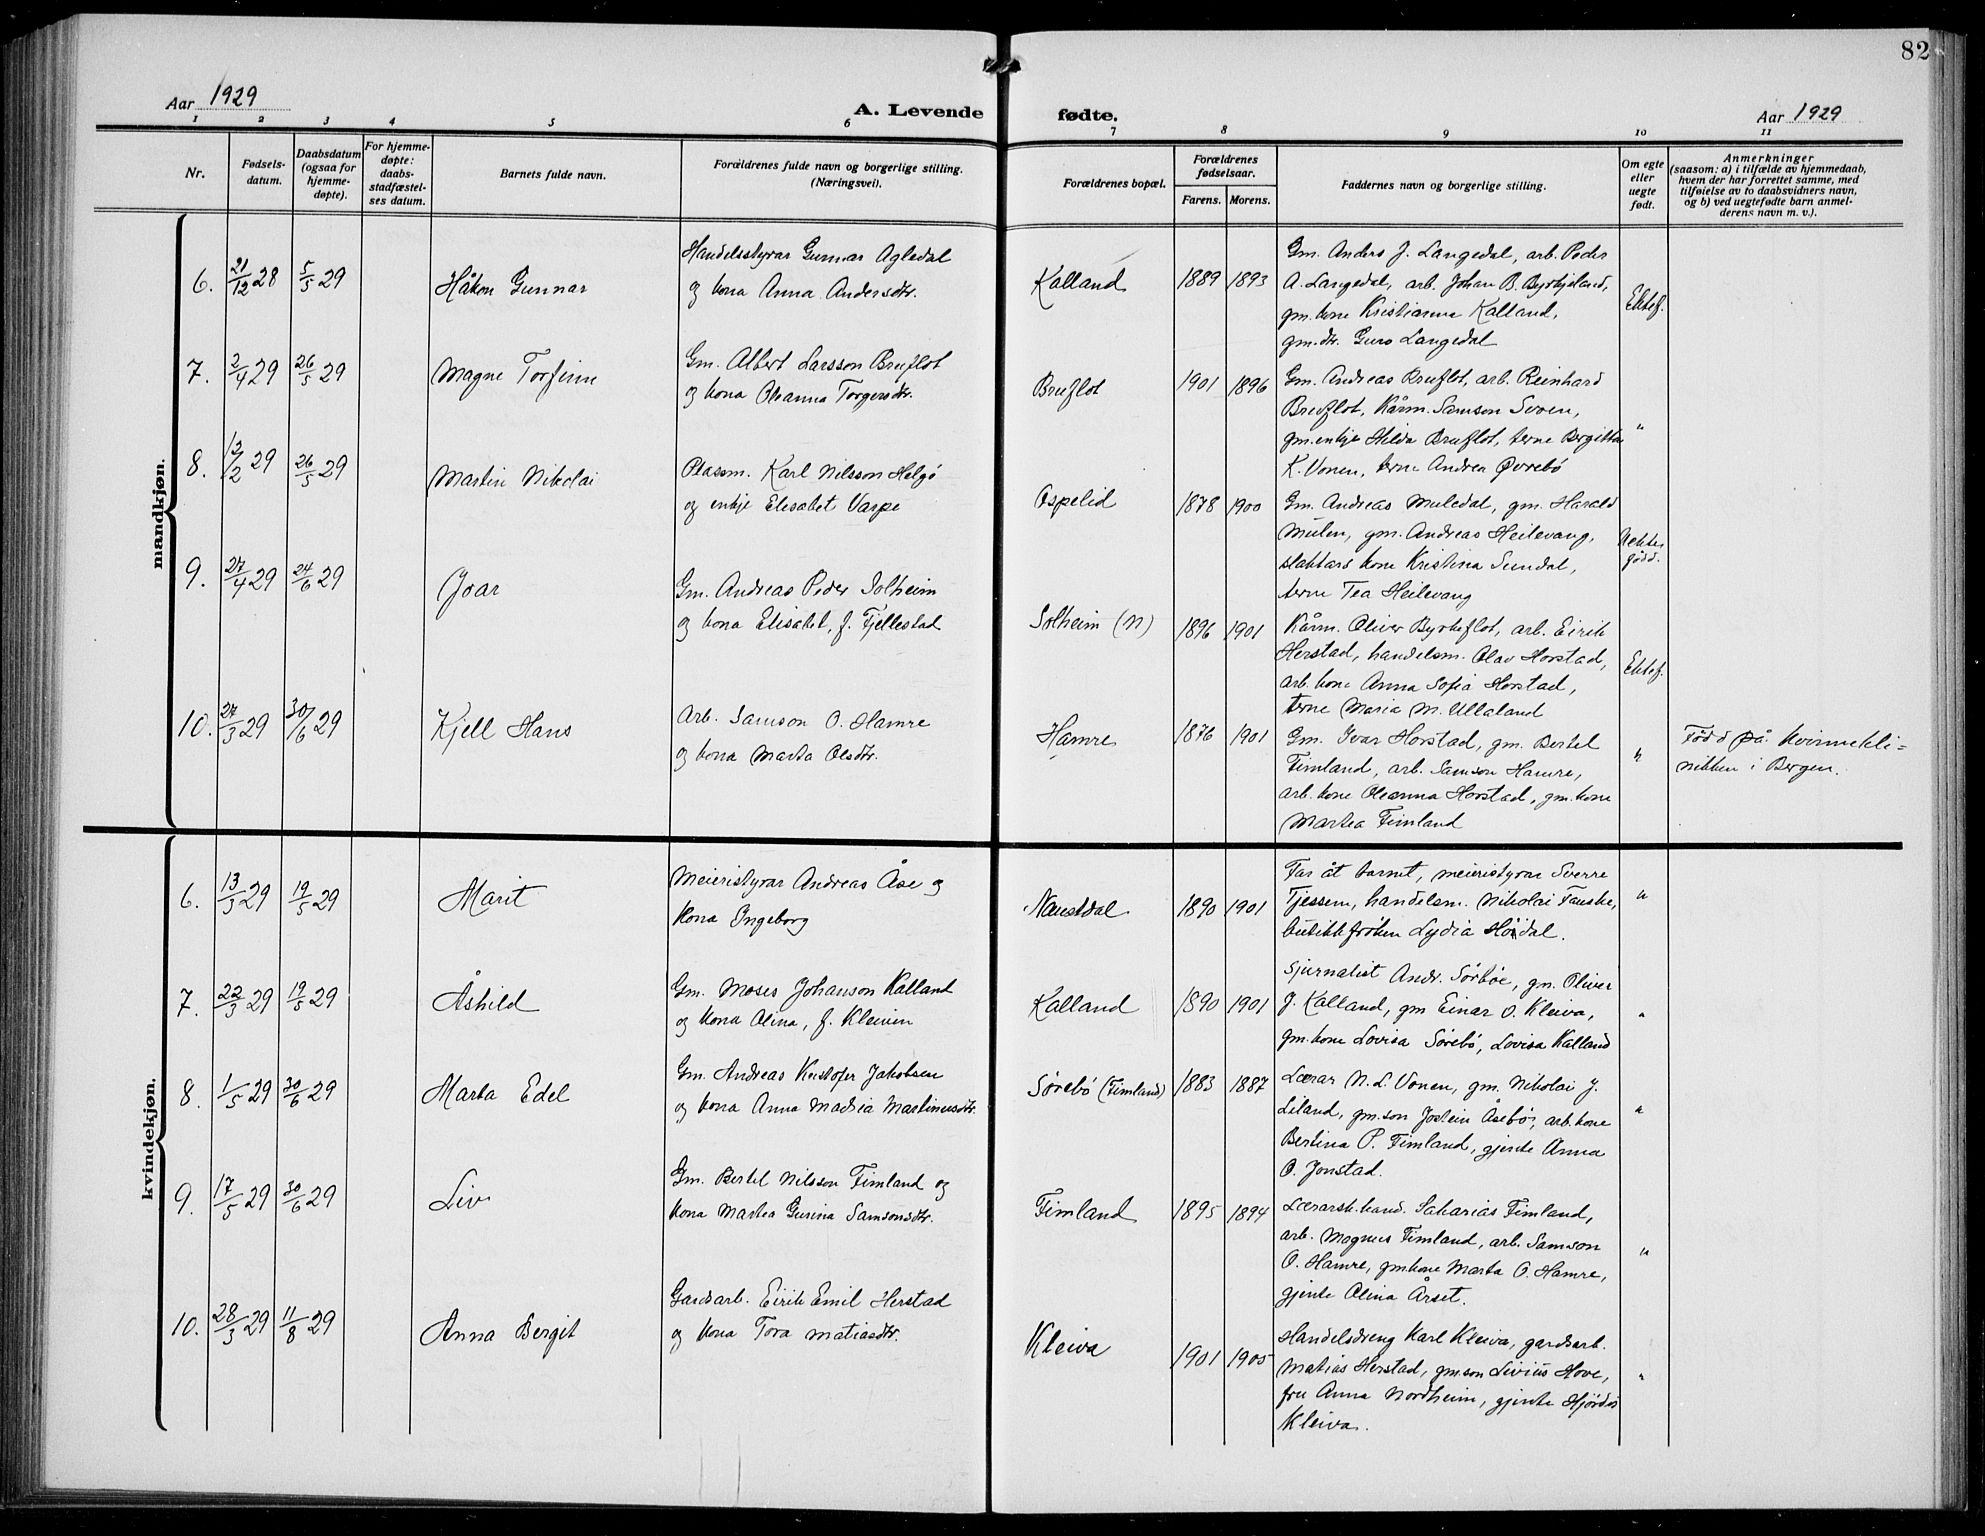 82
Aar 1929
A. Levende fødte.
Aar 1929
1 2 3 4 5 6 7 8 9 10 11
Nr.
Fødsels-
datum.
Daabsdatum
(ogsaa for
hjemme-
døpte).
For hjemme-
døpte:
daabs-
stadfæstel-
ses datum.
Barnets fulde navn.
Forældrenes fulde navn og borgerlige stilling.
(Næringsvei).
Forældrenes bopæl.
Forældrenes
fødselsaar.
Farens. Morens.
Faddernes navn og borgerlige stilling.
Om egte
eller
uegte
født.
Anmerkninger
(saasom: a) i tilfælde av hjemmedaab,
hvem der har forrettet samme, med
tilføielse av to daabsvidners navn,
og b) ved uegtefødte barn anmel-
derens navn m. v.).
mandkjøn.
6. 21/12 28 5/5 29
Håkon Gunnar
Handelsstyrar Gunnar Agledal
og kona Anna Andersdtr.
Kalland 1889 1893
Gm. Anders J. Langedal, arb. Peder
A. Langedal, arb. Johan B. Byrkjeland,
gm. kone Kristianna Kalland,
gm. dtr. Guro Langedal
Ektef.
7. 2/4 29 26/5 29
Magne Torfinn
Gm. Albert Larsson Bruflot
og kona Oleanna Torgersdtr.
Bruflot 1901 1896
Gm. Andreas Bruflot, arb. Reinhard
Bruflot, Kårm. Samson Soven,
gm. enkje Hilda Bruflot, terne Bergitta
K. Vonen, terne Andrea Øvrebø
"
8. 12/2 29 26/5 29
Martin Nikolai
Plassm. Karl Nilsson Helgø
og enkje Elesabet Varpe
Ospelid 1878 1900
Gm. Andreas Muledal, gm. Harald
Mulen, gm. Andreas Heilevang,
slaktars kone Kristina Sundal,
terne Tea Heilevang
Uekte
fødd.
9. 27/4 29 24/6 29
Joar
Gm. Andreas Peder Solheim
og kona Elisabet, f. Fjellestad
Solheim (N) 1896 1901
Kårm. Oliver Byrkeflot, arb. Eirik
Herstad, handelsm. Olav Horstad,
arb. kone Anna Sofia Horstad,
terne Maria M. Ullaland
Ektef.
10. 27/3 29 30/6 29
Kjell Hans
Arb. Samson O. Hamre
og kona Marta Olsdtr.
Hamre 1876 1901
Gm. Ivar Horstad, gm. Bertel
Fimland, arb. Samson Hamre,
arb. kone Oleanna Horstad, gm. kone
Martea Fimland
"
Fødd på Kvinnekli-
nikken i Bergen.
kvindekjøn.
6. 13/3 29 19/5 29
Marit
Meieristyrar Andreas Åse og
kona Ingeborg
Naustdal 1890 1901
Far åt barnet, meieristyrar Sverre
Tjessem, handelsm. Nikolai Fauske,
butikkfrøken Lydia Høidal.
"
7. 22/3 29 19/5 29
Åshild
Gm. Moses Johanson Kalland
og kona Olina, f. Kleiven
Kalland 1890 1901
Sjurnalist Andr. Sørbøe, gm. Oliver
J. Kalland, gm Einar O. Kleiva,
gm. kone Lovisa Sørebø, Lovisa Kalland
"
8. 1/5 29 30/6 29
Marta Edel
Gm. Andreas Kristofer Jakobsen
og kona Anna Mathea Martinusdtr.
Sørebø (Fimland) 1883 1887
Lærar N. L. Vonen, gm. Nikolai J.
Liland, gm. son Jostein Åsebø, arb. kone
Bertina P. Fimland, gjente Anna
O. Jonstad.
"
9. 17/5 29 30/6 29
Liv
Gm. Bertel Nilsson Fimland og
kona Martea Gurina Samsonsdtr.
Fimland 1895 1894
Lærarsk. kand. Sakarias Fimland,
arb. Magnus Fimland, arb. Samson
O. Hamre, gm. kone Marta O. Hamre,
gjente Olina Årset.
"
10. 28/3 29 11/8 29
Anna Bergit
Gardsarb. Eirik Emil Herstad
og kona Tora Matiasdtr.
Kleiva 1901 1905
Handelsdreng Karl Kleiva, gardsarb.
Matias Herstad, gm. son Livius Hove,
fru Anna Nordheim, gjente Hjørdis
Kleiva.
"